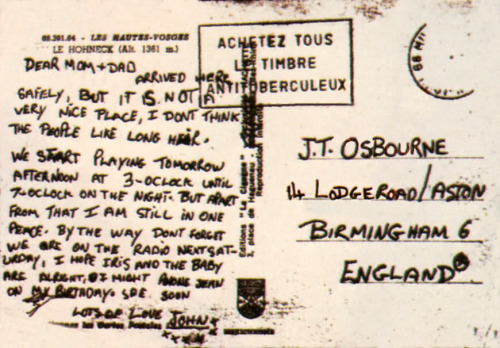 68.201.64 - LES HAUTES-VOSGES
LE HOHNECK (Alt. 1361 m.)
DEAR MOM + DAD
ARRIVED HERE
SAFELY, BUT IT IS NOT A
VERY NICE PLACE, I DONT THINK
THE PEOPLE LIKE LONG HAIR.
WE START PLAYING TOMORROW
AFTERNOON AT 3-OCLOCK UNTIL
7-OCLOCK ON THE NIGHT. BUT APART
FROM THAT I AM STILL IN ONE
PEACE. BY THE WAY DONT FORGET
WE ARE ON THE RADIO NEXT SAT-
URDAY, I HOPE IRIS AND THE BABY
ARE ALRIGHT, I MIGHT PHONE JEAN
ON MY BIRTHDAY. SEE SOON
LOTS OF LOVE JOHN
x x x x
ACHETEZ TOUS
LE TIMBRE
ANTITUBERCULEUX
Editions "La Cigogne"
I, place de
Reproduction
J.T. OSBOURNE
14 LODGEROAD/ASTON
BIRMINGHAM 6
ENGLAND